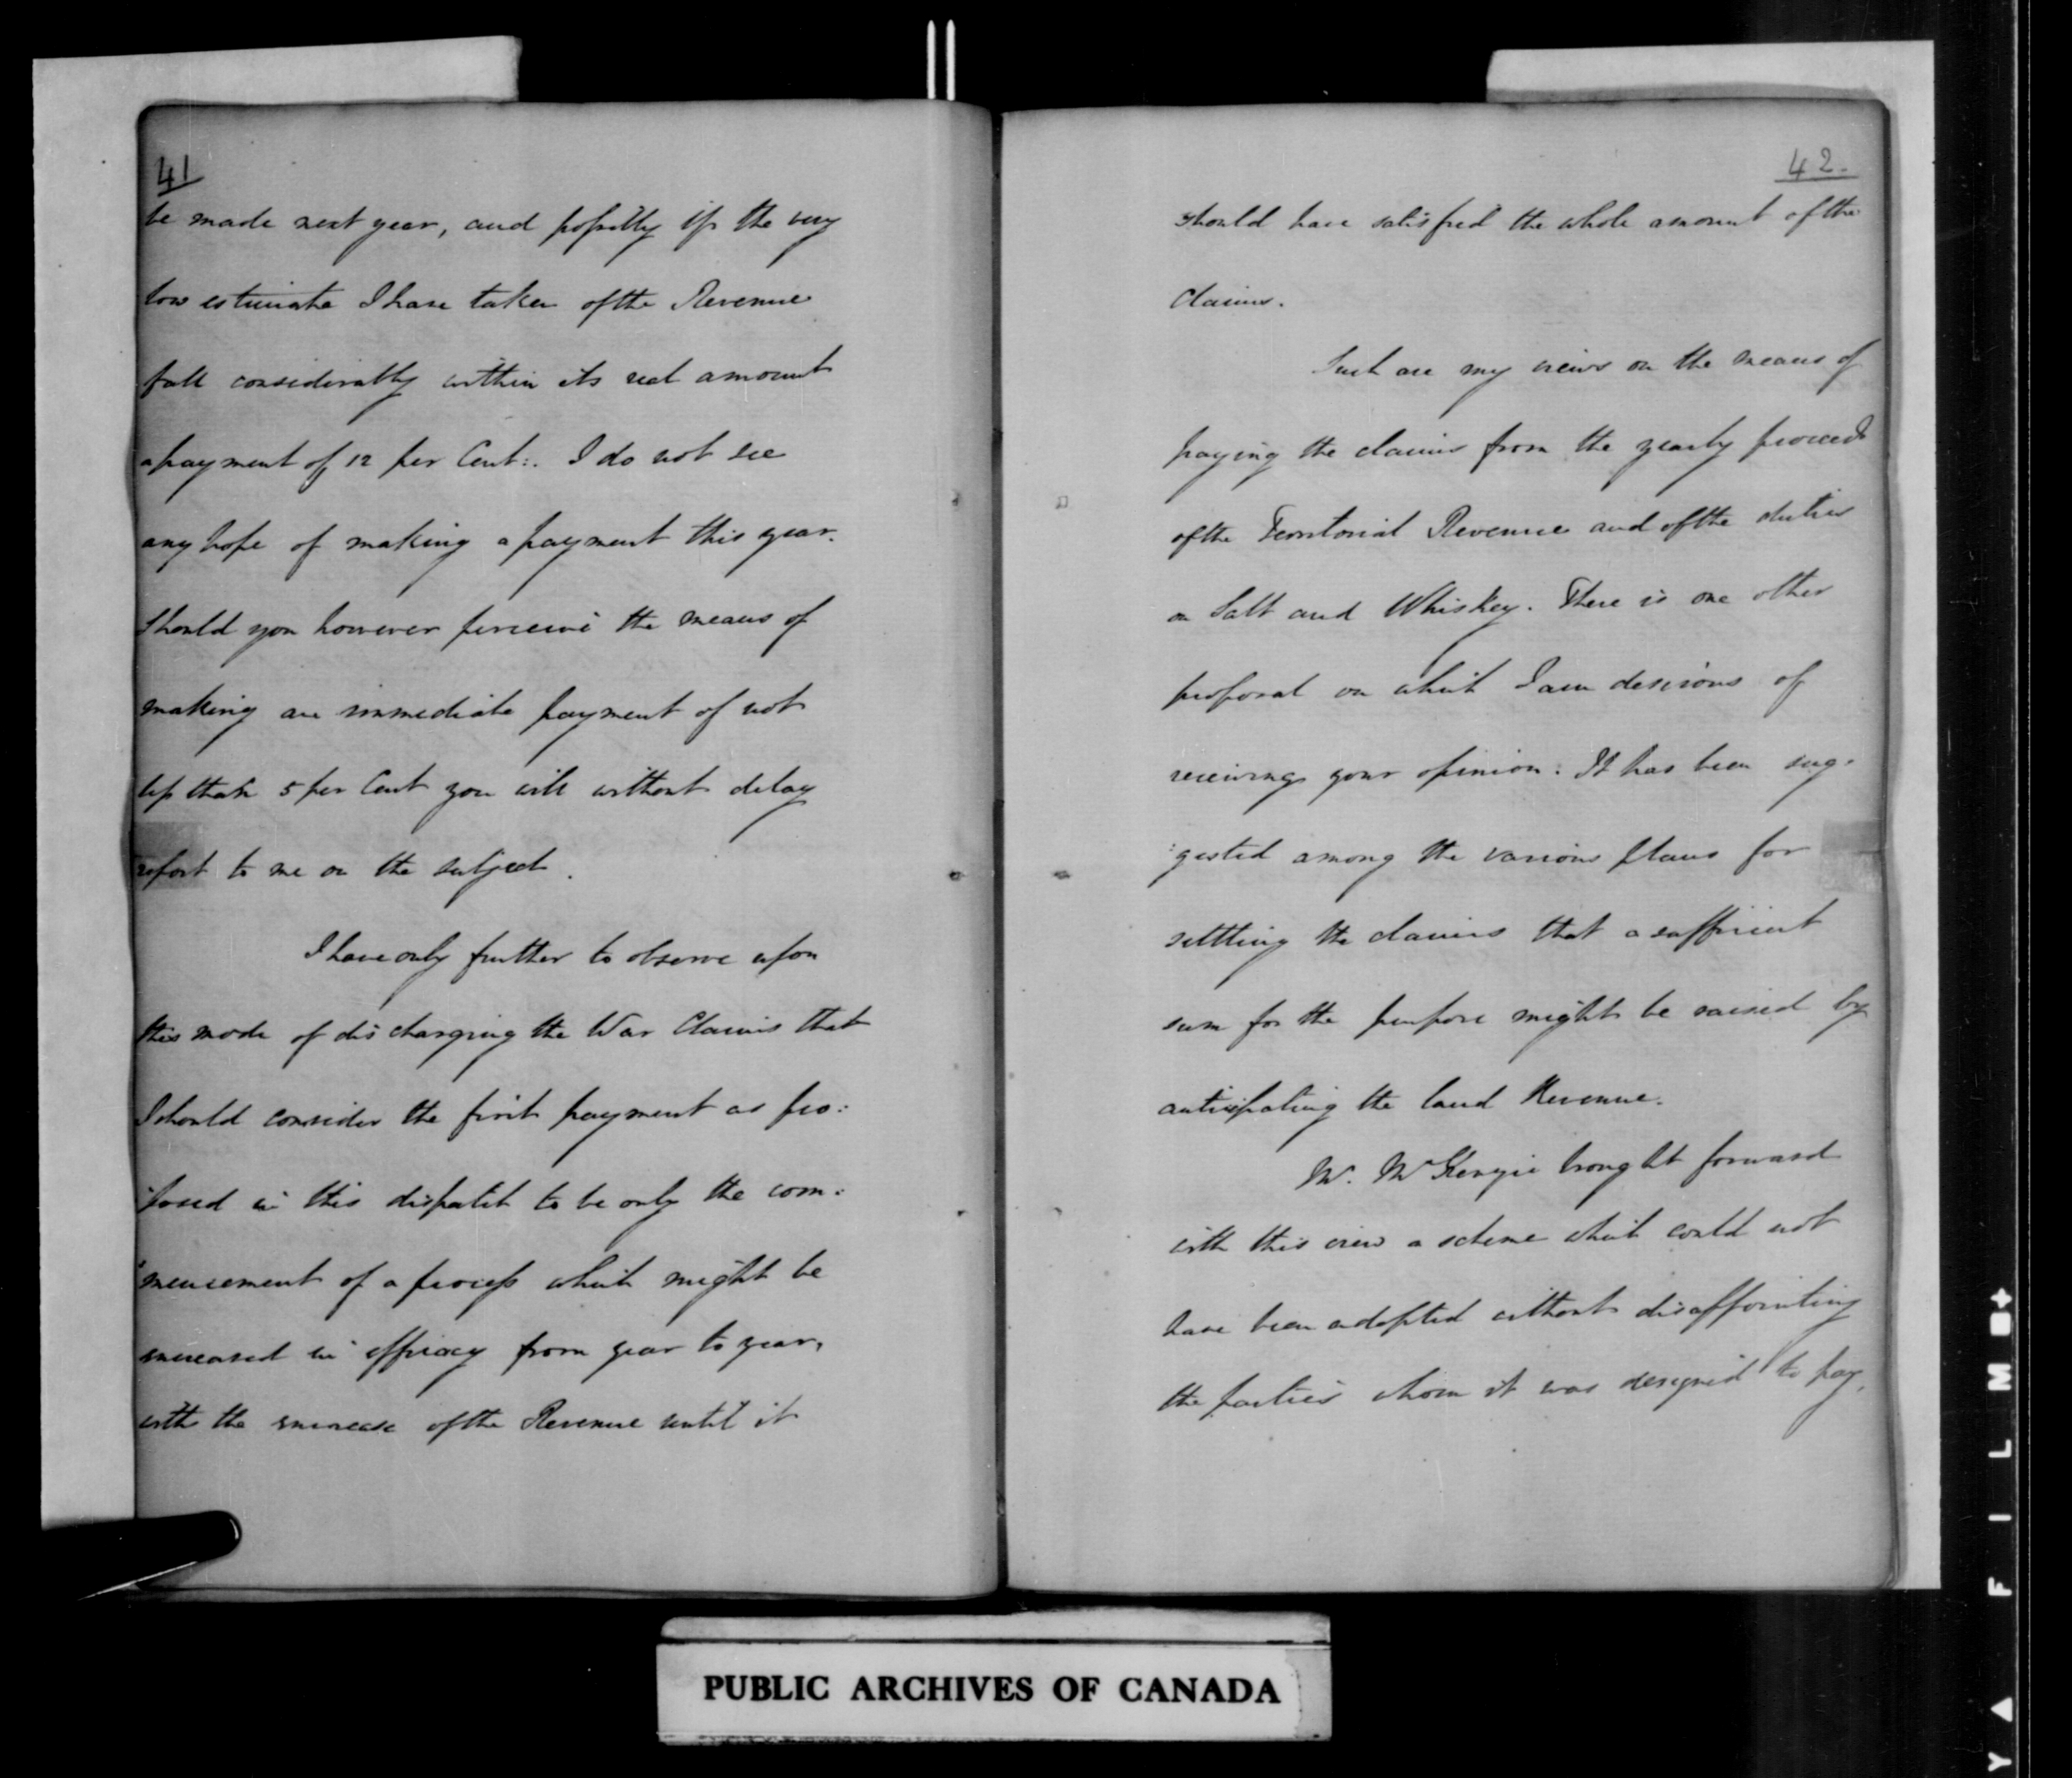 41
be made next year, and possibly if the very
low estimate I have taken of the Revenue
fall considerably within its real amount
a payment of 12 per Cent:. I do not see
any hope of making a payment this year.
Should you however perceive the means of
making an immediate payment of not
less than 5 per Cent you will without delay
report to me on the subject.
I have only further to observe upon
this mode of discharging the War Claims that
I should consider the first payment as pro:
:posed in this dispatch to be only the com:
:mencement of a process which might be
increased in efficacy from year to year,
with the increase of the Revenue until it
42.
should have satisfied the whole amount of the
Claims.
Such are my views on the means of
paying the claims from the yearly proceeds
of the Territorial Revenue and of the duties
on Salt and Whiskey. There is one other
proposal on which I am desirous of
receiving your opinion. It has been sug:
:gested among the various plans for
settling the claims that a sufficient
sum for the purpose might be raised by
anticipating the land Revenue.
Mr. McKenzie brought forward
with this view a scheme which could not
have been adopted without disappointing
the parties whom it was designed to pay.
PUBLIC ARCHIVES OF CANADA
Y ▲ F I L M